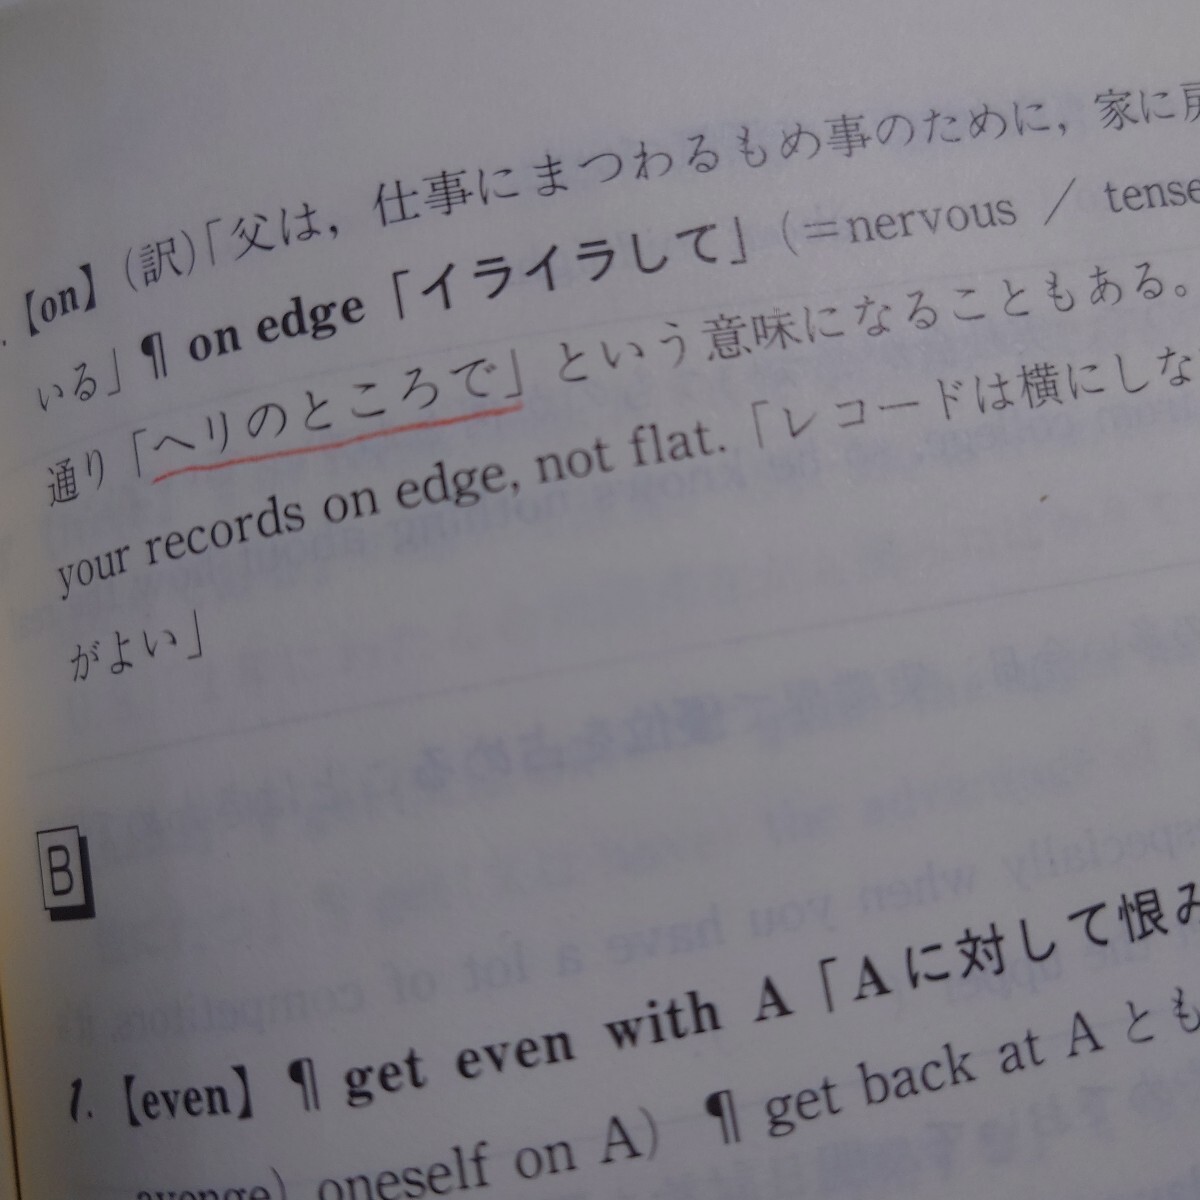 【on】(訳)「父は，仕事にまつわるもめ事のために，家に
いる」¶ on edge「イライラして」(＝nervous / tense
通り「ヘリのところで」という意味になることもある。
your records on edge, not flat.「レコードは横にしな
がよい」
B
1.【even】¶ get even with A「Aに対して恨み
oneself on A) ¶ get back at A とも